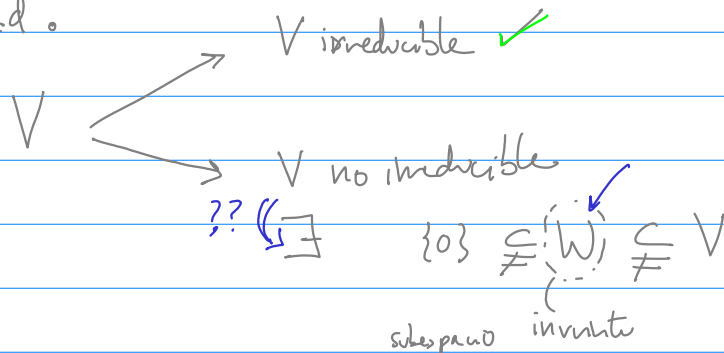 d.
V irreducible ✓
V
V no irreducible
?? ∃ {0} ⊊ W ⊊ V
subespacio invariante